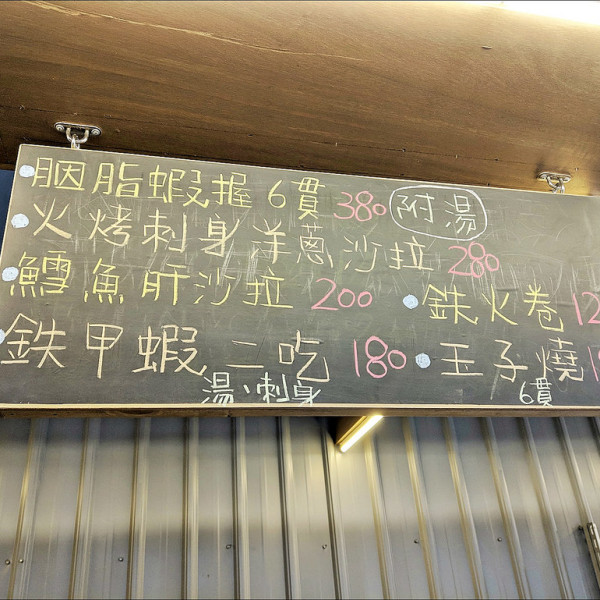 胭脂蝦握 6貫 380 附湯
火烤刺身洋蔥沙拉 280
鱈魚肝沙拉 200
鉄火卷
鉄甲蝦二吃 180
湯、刺身
玉子燒
6貫